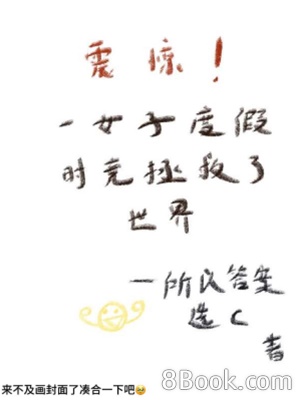 震惊！
一女子度假
时竟拯救了
世界
一所以答案
选C
著
8Book.com
来不及画封面了凑合一下吧🥺